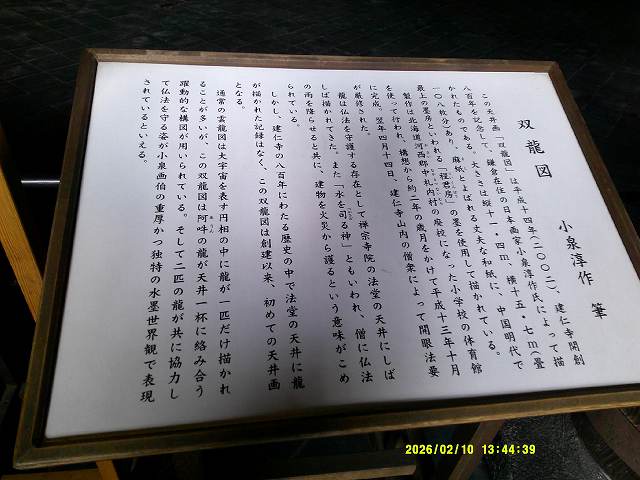 双龍図
小泉淳作 筆
この天井画「双龍図」は平成十四年（二〇〇二）、建仁寺開創
八百年を記念して、鎌倉在住の日本画家小泉淳作氏によって描
かれたものである。大きさは縦十一・四m、横十五・七m（畳
一〇八枚分）あり、麻紙とよばれる丈夫な和紙に、中国明代で
最上の墨房といわれる「程君房」の墨を使用して描かれている。
製作は北海道河西郡中札内村の廃校になった小学校の体育館
を使って行われ、構想から約二年の歳月をかけて平成十三年十月
に完成。翌年四月十四日、建仁寺山内の僧衆によって開眼法要
が厳修された。
龍は仏法を守護する存在として禅宗寺院の法堂の天井にしば
しば描かれてきた。また「水を司る神」ともいわれ、僧に仏法
の雨を降らせると共に、建物を火災から護るという意味がこめ
られている。
しかし、建仁寺の八百年にわたる歴史の中で法堂の天井に龍
が描かれた記録はなく、この双龍図は創建以来、初めての天井画
となる。
通常の雲龍図は大宇宙を表す円相の中に龍が一匹だけ描かれ
ることが多いが、この双龍図は阿吽の龍が天井一杯に絡み合う
躍動的な構図が用いられている。そして二匹の龍が共に協力し
て仏法を守る姿が小泉画伯の重厚かつ独特の水墨世界観で表現
されているといえる。
2026/02/10 13:44:39